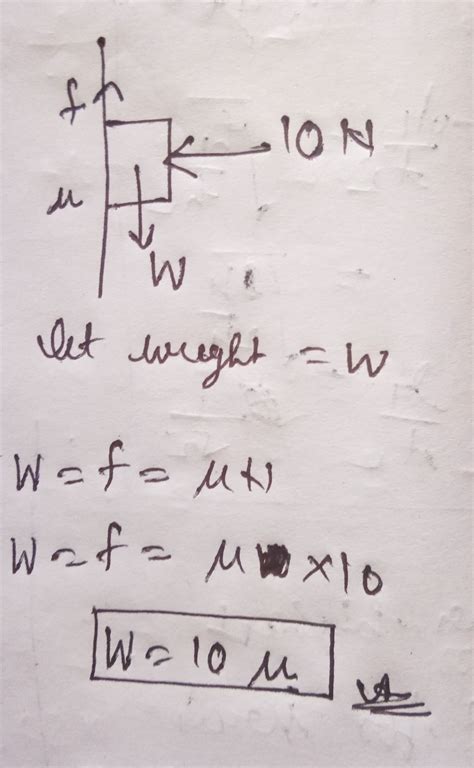 f
10 N
μ
W
let weight = W
W = f = μN
W = f = μ × 10
W = 10 μ